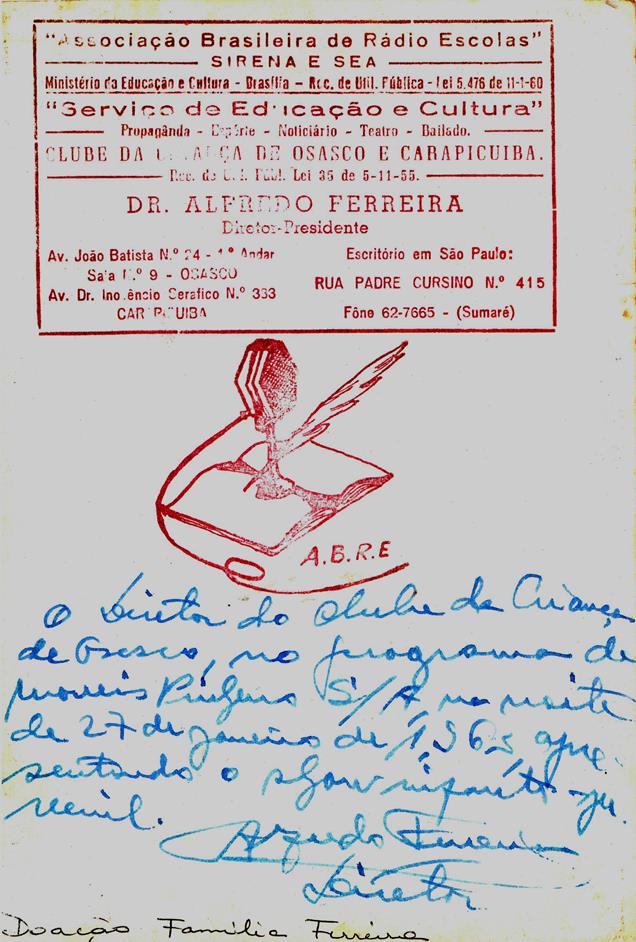 "Associação Brasileira de Rádio Escolas"
SIRENA E SEA
Ministério da Educação e Cultura - Brasília - Rec. de Util. Pública - Lei 5.476 de 11-1-60
"Serviço de Educação e Cultura"
Propagânda - Espórte - Noticiário - Teatro - Bailado.
CLUBE DA CRIANÇA DE OSASCO E CARAPICUIBA.
Rec. de U. Públ. Lei 35 de 5-11-55.
DR. ALFREDO FERREIRA
Diretor-Presidente
Av. João Batista N.º 24 - 1º Andar
Sala N.º 9 - OSASCO
Av. Dr. Inocêncio Serafico N.º 333
CARAPICUIBA
Escritório em São Paulo:
RUA PADRE CURSINO N.º 415
Fône 62-7665 - (Sumaré)
A.B.R.E
O Diretor do Clube da Criança
de Osasco, no programa de
moveis Pinheiro S/A, na noite
de 27 de janeiro de 1.965 apre-
sentando o show infanto-ju-
venil.
Alfredo Ferreira
Diretor
Doação Família Ferreira